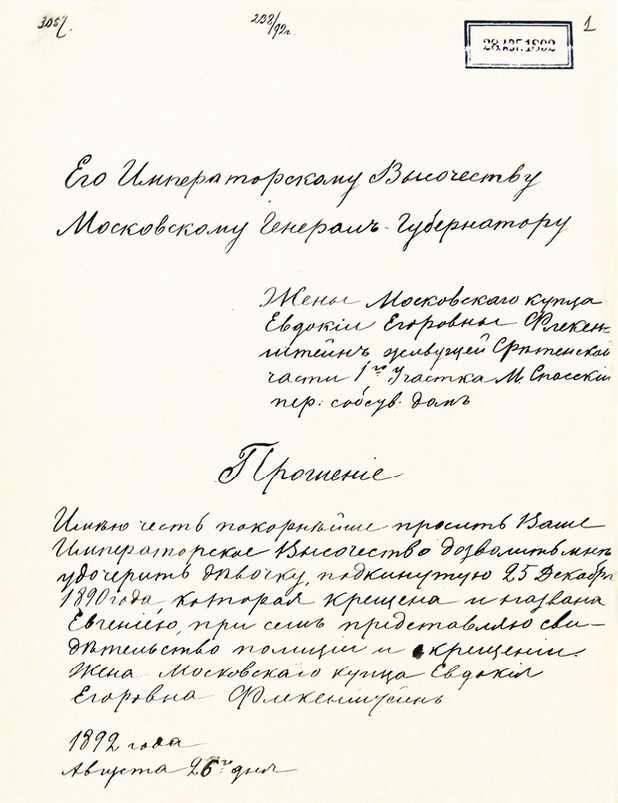 3057.
232/92г.
1
28.АВГ.1892
Его Императорскому Высочеству
Московскому Генералъ-Губернатору
Жены Московскаго купца
Евдокіи Егоровны Флекен-
штейнъ живущей Срѣтенской
части 1го участка М. Спасскій
пер: собсув. домъ
Прошеніе
Имѣю честь покорнѣйше просить Ваше
Императорское Высочество дозволить мнѣ
удочерить дѣвочку, подкинутую 25 Декабря
1890 года, которая крещена и названа
Евгеніею, при семъ представляю сви-
дѣтельство полиціи и о крещении.
Жена Московскаго купца Евдокія
Егоровна Флекенштейнъ
1892 года
Августа 26го дня